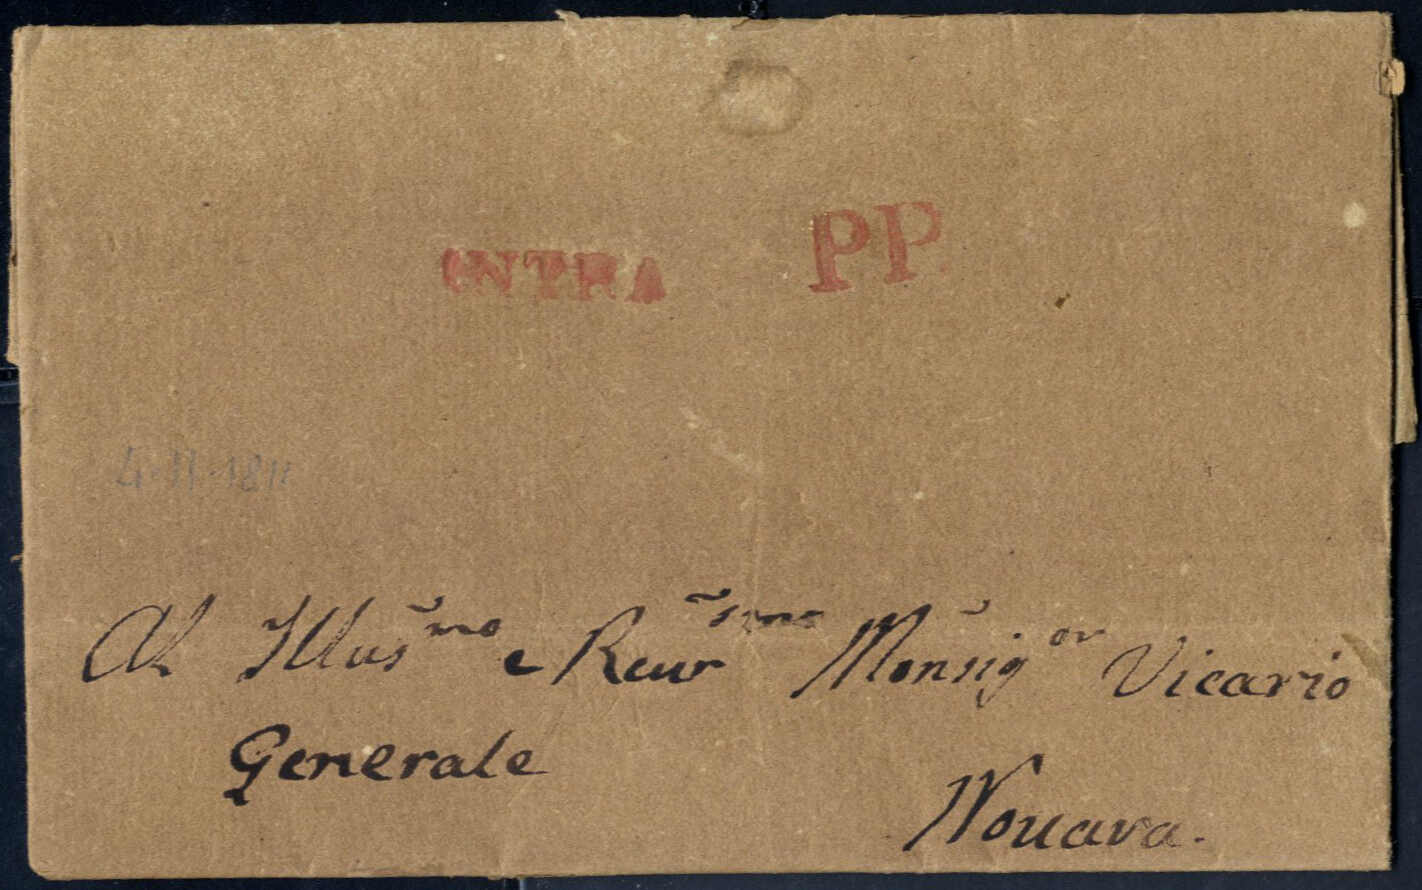 INTRA PP.
4.11.1811
Al Illus̃mo e Reur̃smo Monsig̃or Vicario
Generale
Nouara.